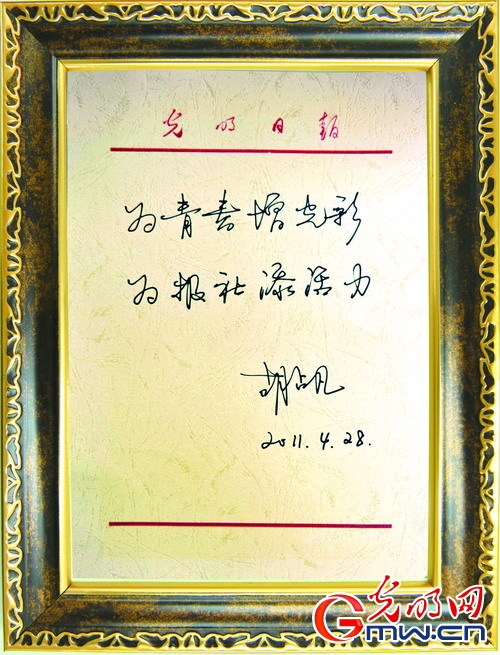 光明日报
为青春增光彩
为报社添活力
胡占凡
2011.4.28.
光明网
Gmw.cn